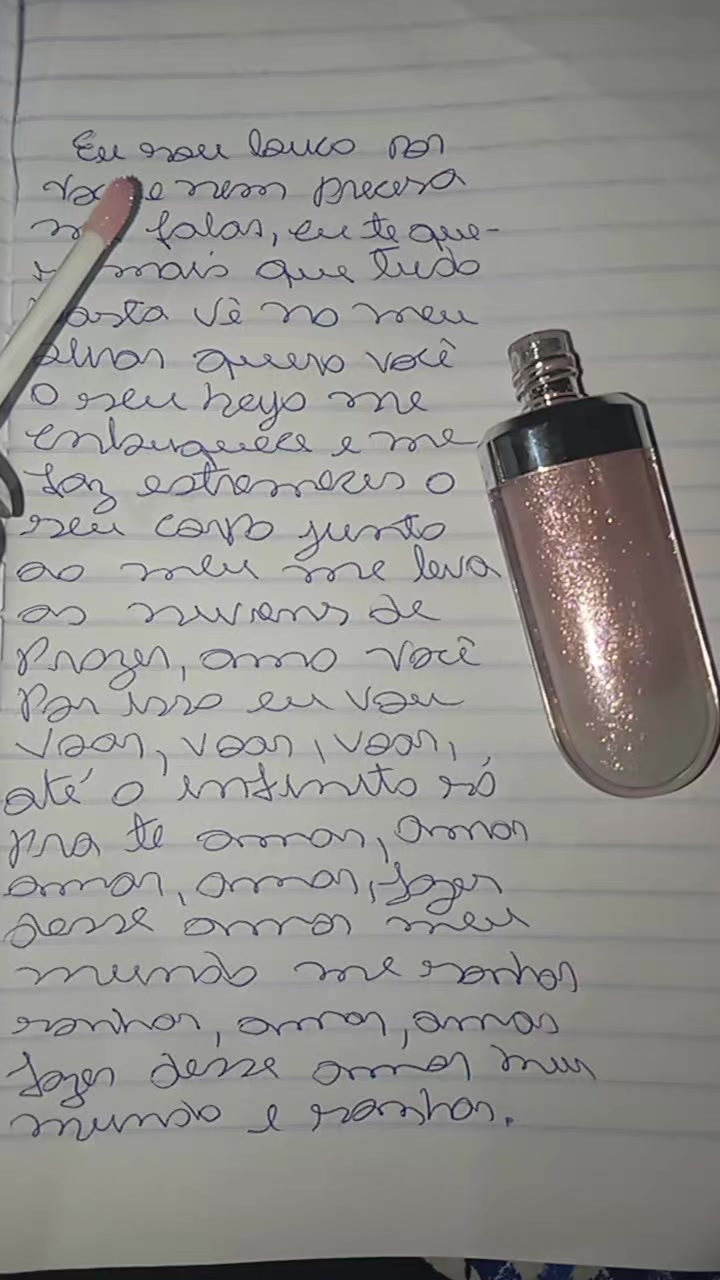 Eu sou louco por
você e nem precesa
falar, eu te que-
mais que tudo
basta vê no meu
olhar quero você
O seu beyo me
enlouquece e me
faz estremeces o
seu corpo junto
ao meu me leva
as nuvens de
Prazer, amo você
Por isso eu vou
voar, voar, voar,
até o infinito só
pra te amar, amar
amar, amar, fazer
desse amor meu
mundo me sonhar
sonhar, amar, amar
fazer desse amor meu
mundo e sonhar.